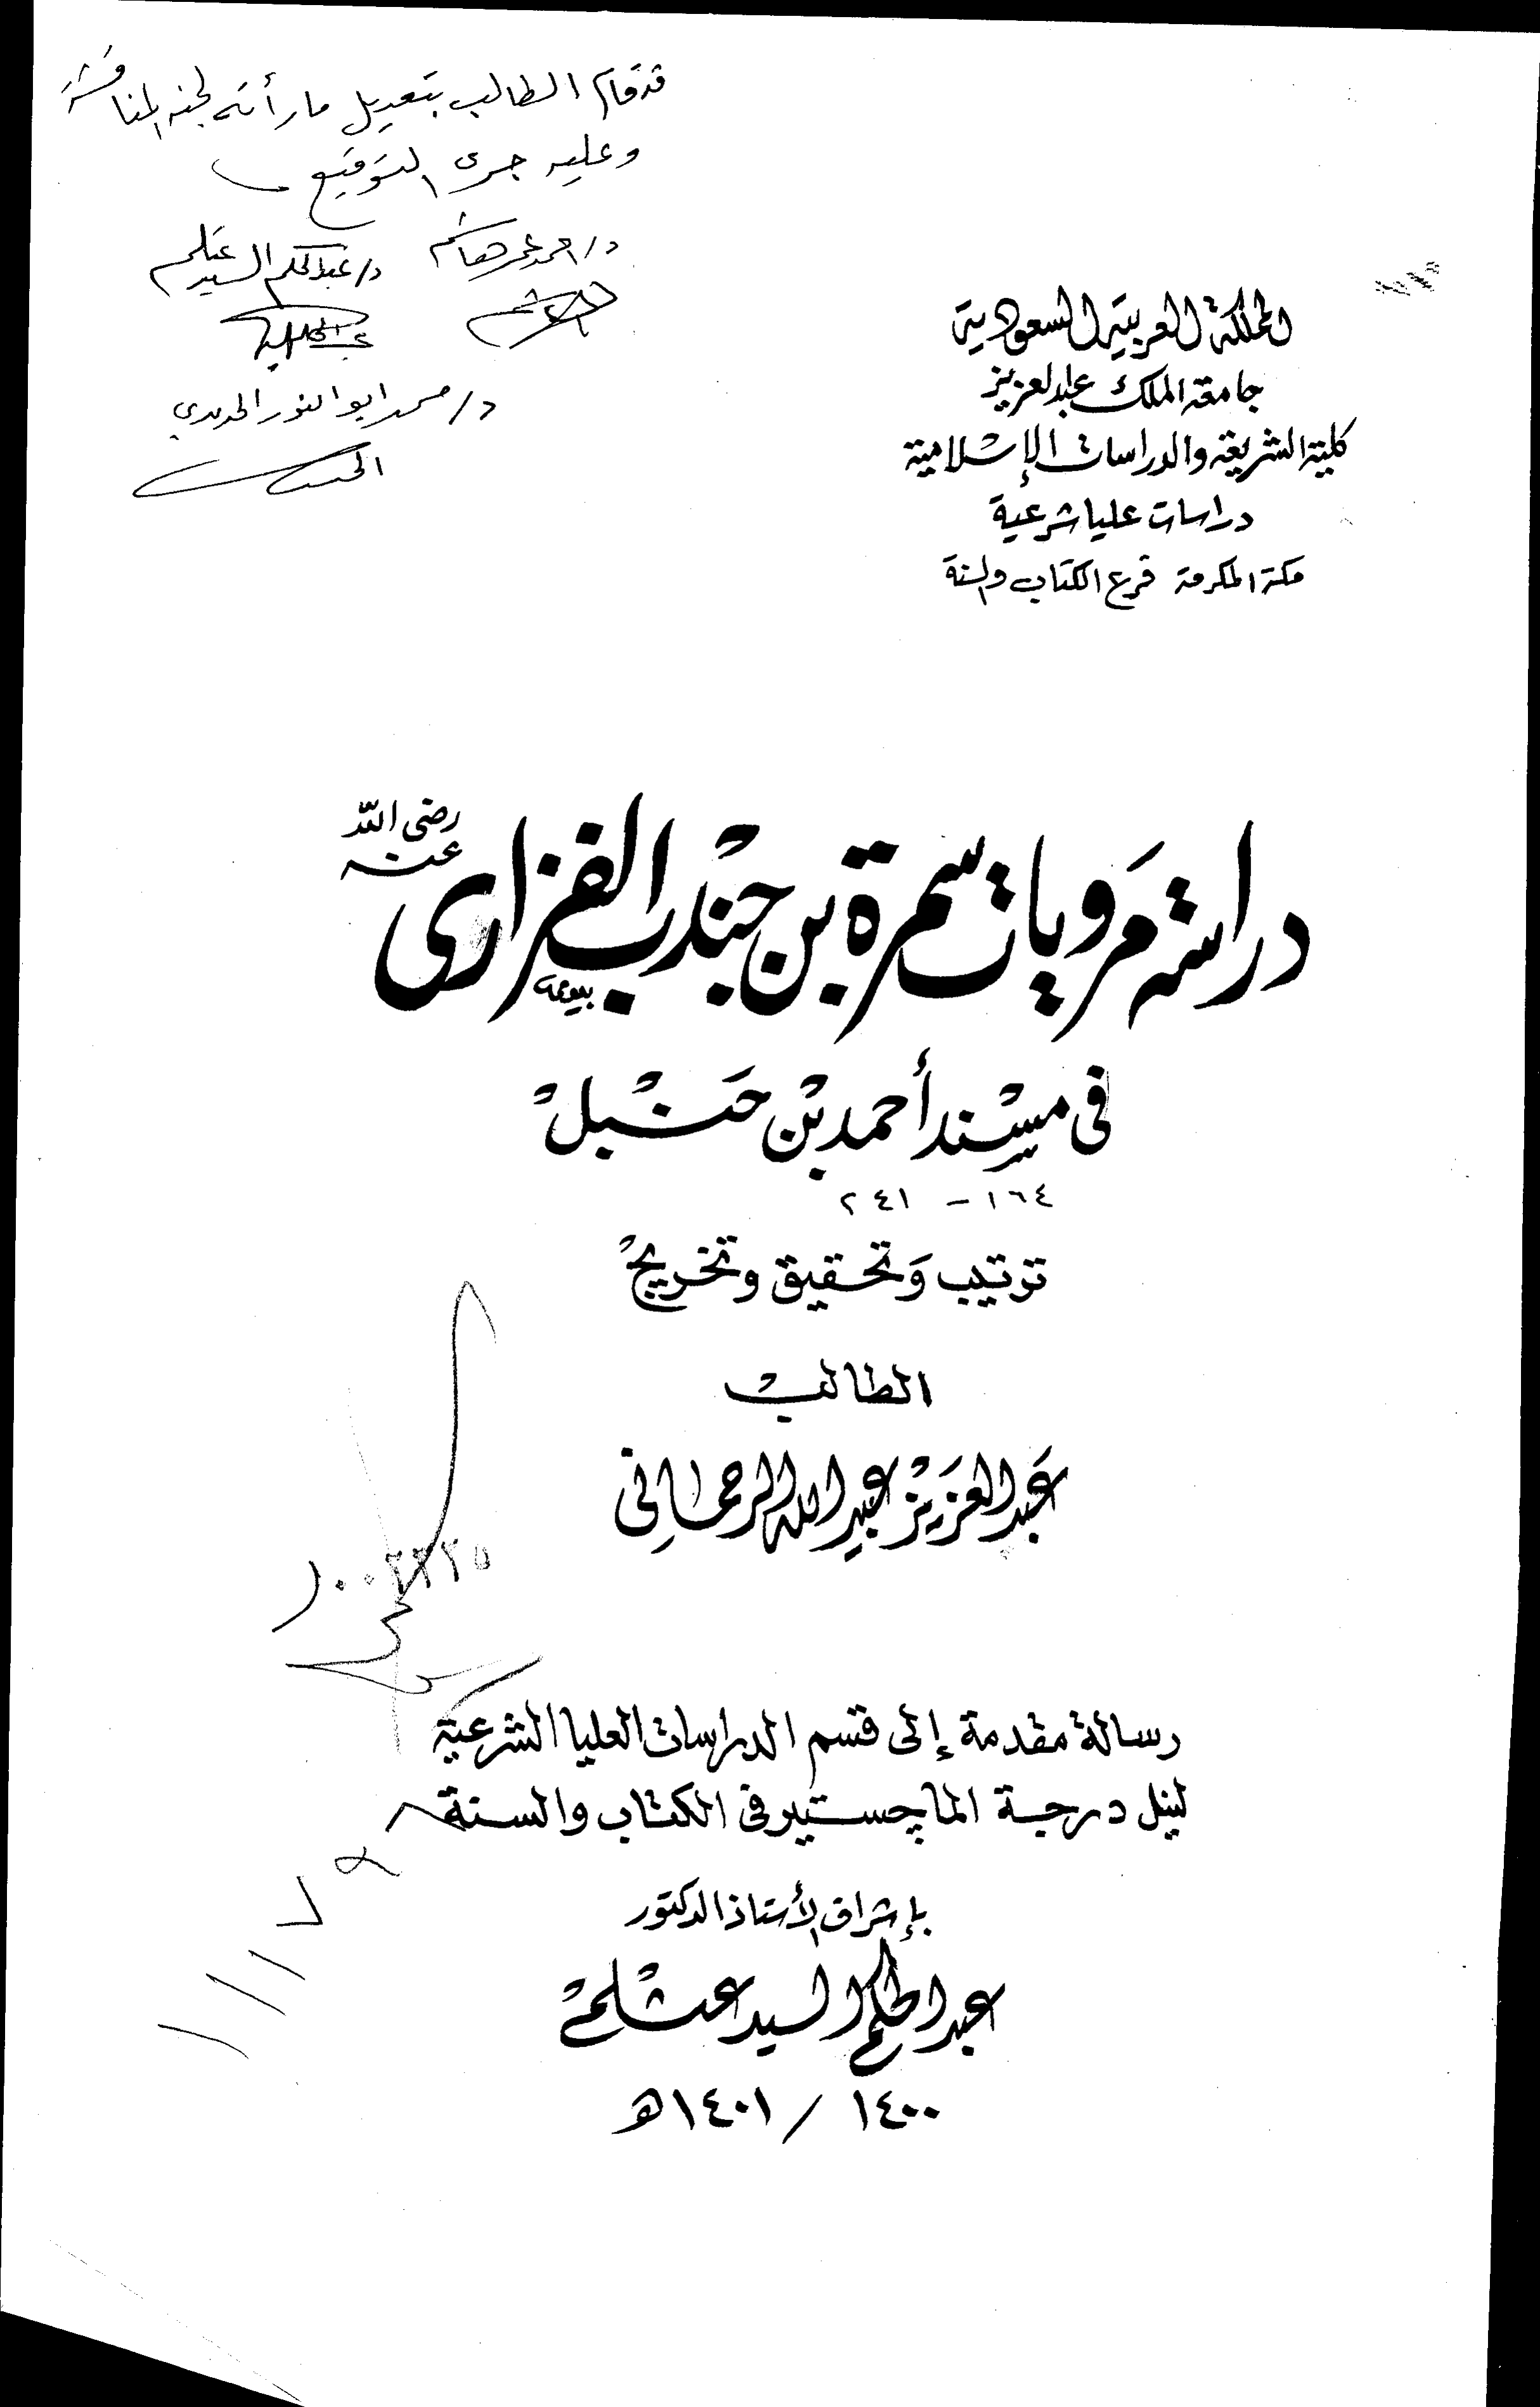 قد قام الطالب بتعديل ما رأته لجنة المناقشة
وعليه جرى التوقيع
د/ احمد عمر هاشم
د/ عبد الحكم السيد عتلم
د/ محمد ابو النور الحديدي
المملكة العربية السعودية
جامعة الملك عبد العزيز
كلية الشريعة والدراسات الإسلامية
دراسات عليا شرعية
مكة المكرمة فرع الكتاب والسنة
دراسة مرويات سمرة بن جندب الفزارى
رضى الله
عنه
فى مسند أحمد بن حنبل
١٦٤ - ٢٤١
ترتيب وتحقيق وتخريج
الطالب
عبد العزيز عبد الله الرحمانى
رسالة مقدمة إلى قسم الدراسات العليا الشرعية
لنيل درجة الماجستير فى الكتاب والسنة
بإشراف الأستاذ الدكتور
عبد الحكم السيد عتلم
١٤٠٠ / ١٤٠١ هـ